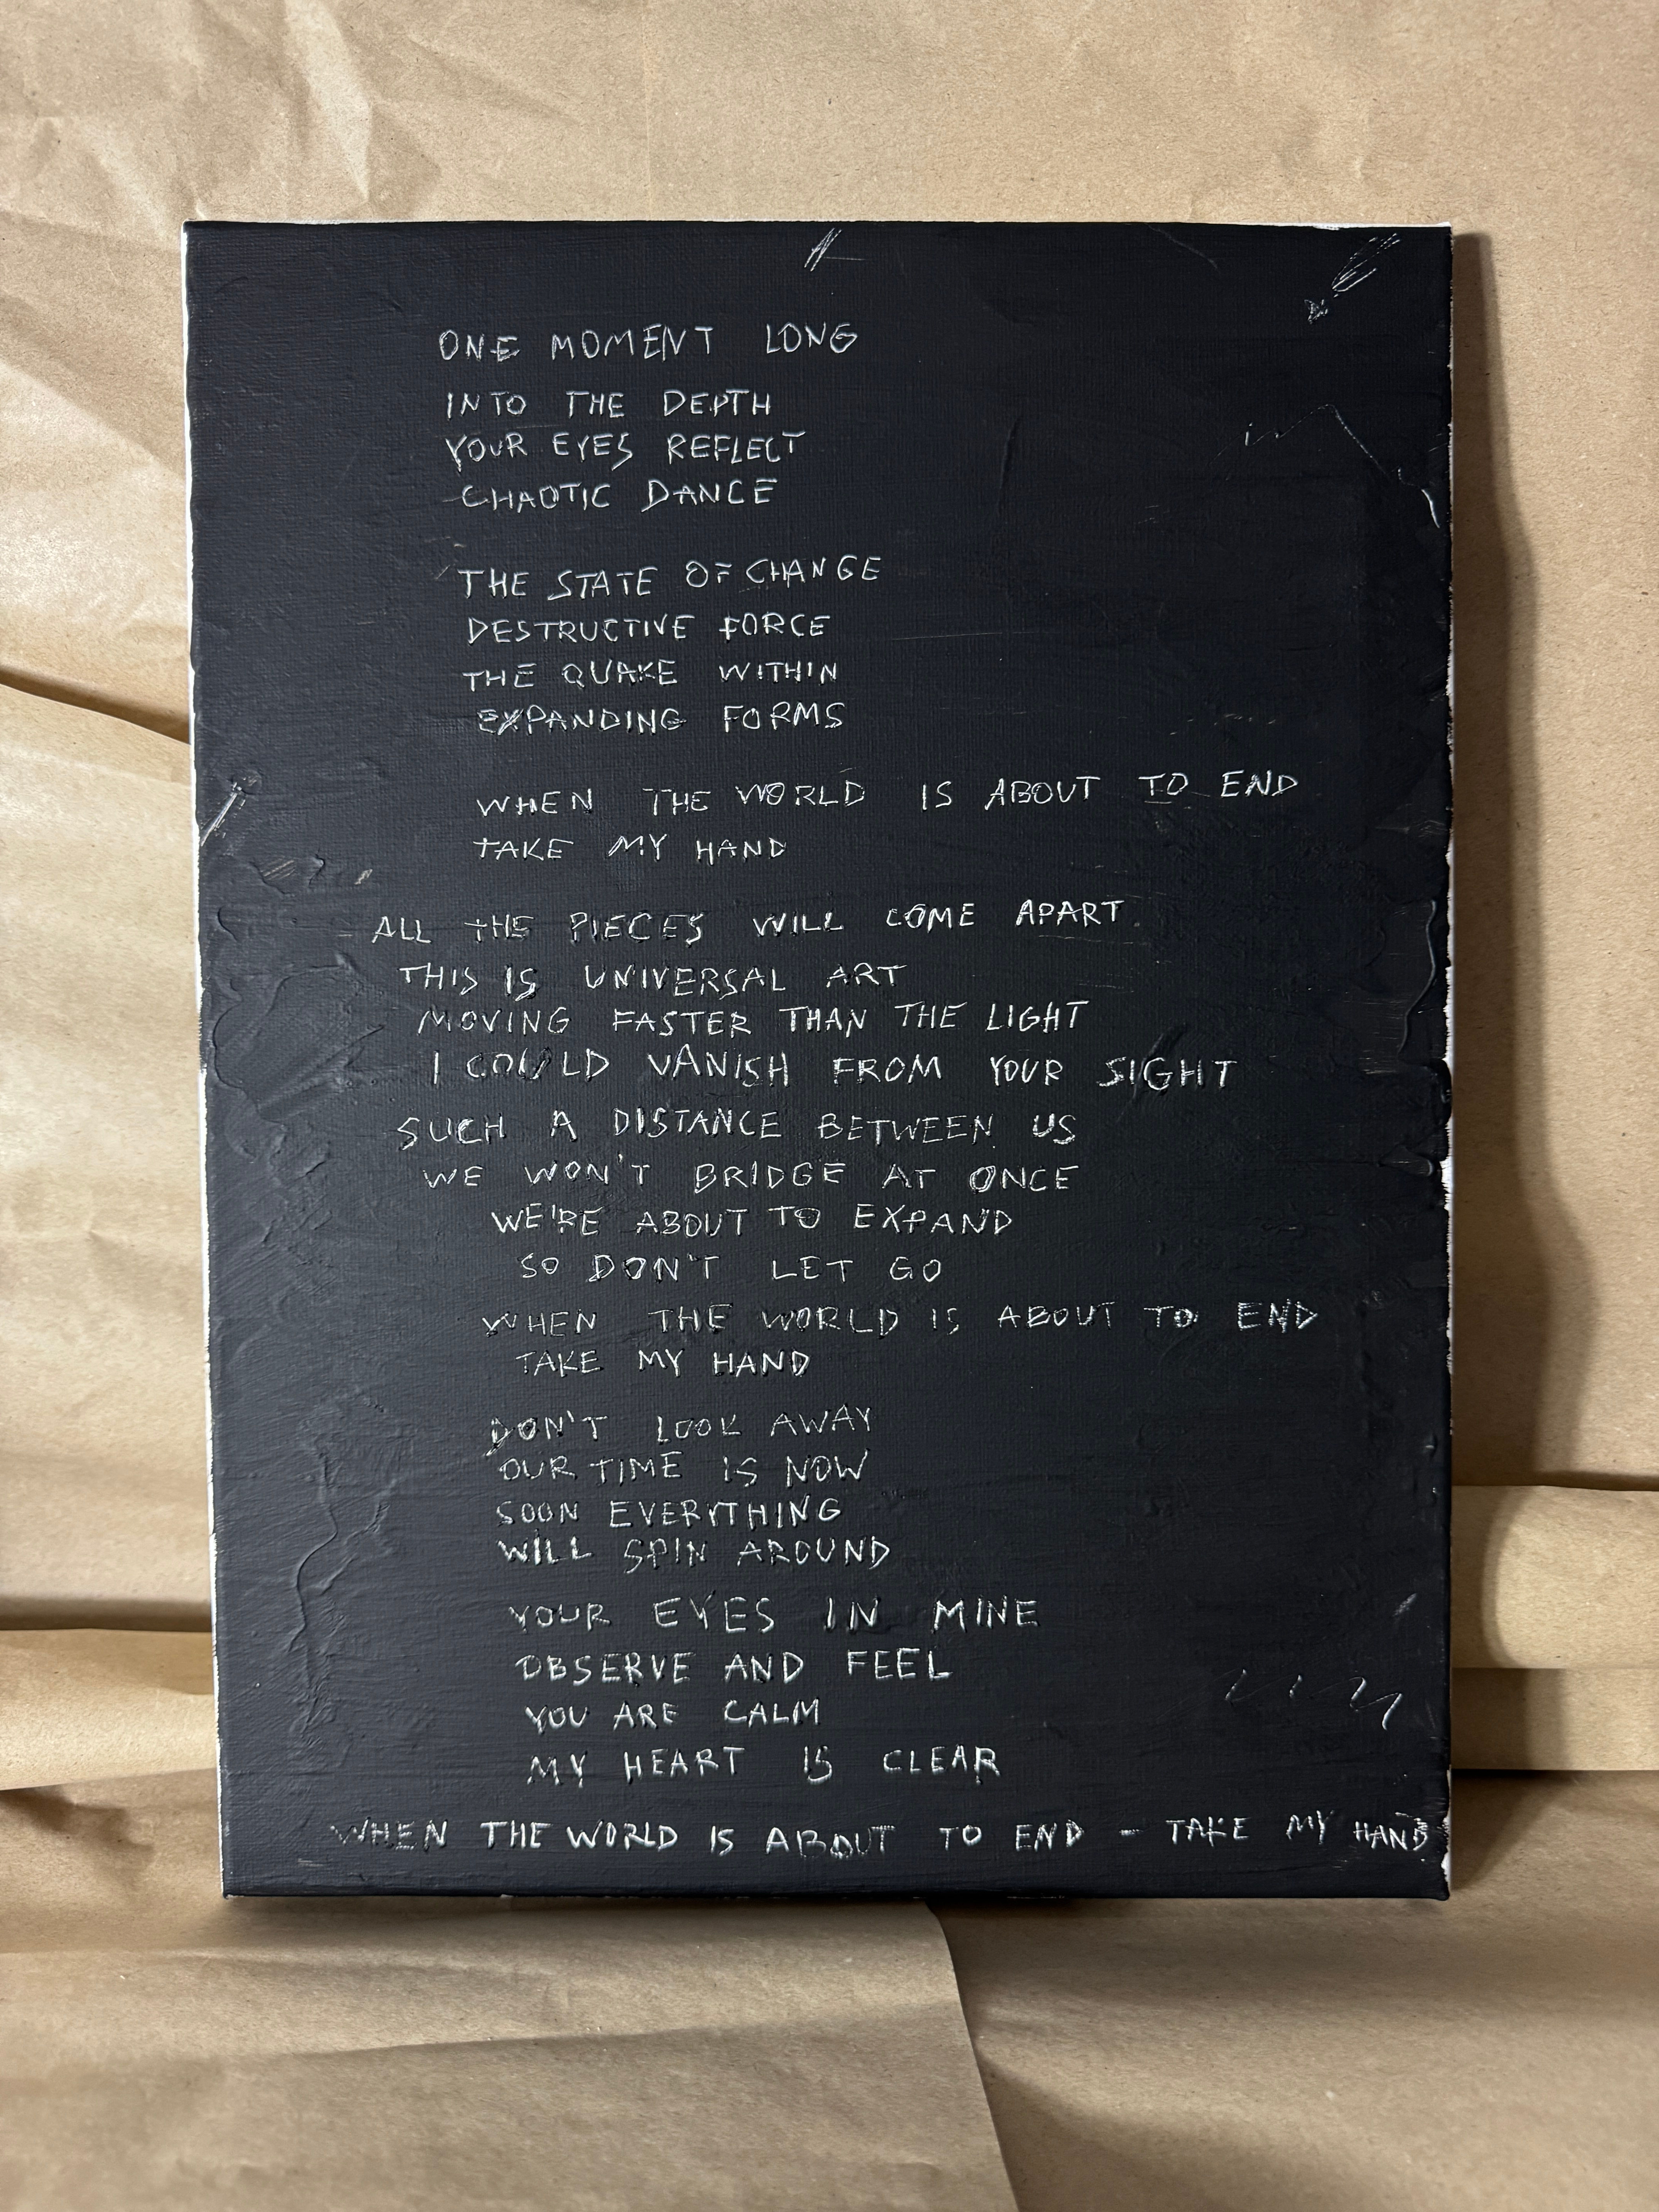 ONE MOMENT LONG
INTO THE DEPTH
YOUR EYES REFLECT
CHAOTIC DANCE
THE STATE OF CHANGE
DESTRUCTIVE FORCE
THE QUAKE WITHIN
EXPANDING FORMS
WHEN THE WORLD IS ABOUT TO END
TAKE MY HAND
ALL THE PIECES WILL COME APART.
THIS IS UNIVERSAL ART
MOVING FASTER THAN THE LIGHT
I COULD VANISH FROM YOUR SIGHT
SUCH A DISTANCE BETWEEN US
WE WON'T BRIDGE AT ONCE
WE'RE ABOUT TO EXPAND
SO DON'T LET GO
WHEN THE WORLD IS ABOUT TO END
TAKE MY HAND
DON'T LOOK AWAY
OUR TIME IS NOW
SOON EVERYTHING
WILL SPIN AROUND
YOUR EYES IN MINE
OBSERVE AND FEEL
YOU ARE CALM
MY HEART IS CLEAR
WHEN THE WORLD IS ABOUT TO END - TAKE MY HAND